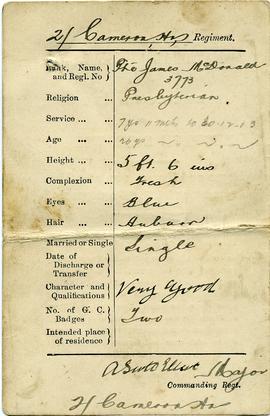 2/ Cameron Hrs Regiment.
Rank, Name, and Regl. No } Pte James McDonald 3773
Religion ... Presbyterian
Service ... 7 yrs to 30.12.13
Age ...
Height ... 5 ft. 6 ins
Complexion ... Fresh
Eyes ... Blue
Hair ... Auburn
Married or Single Single
Date of Discharge or Transfer }
Character and Qualifications } Very Good
No. of G. C. Badges } Two
Intended place of residence }
Major
Commanding Regt.
2/ Cameron Hrs